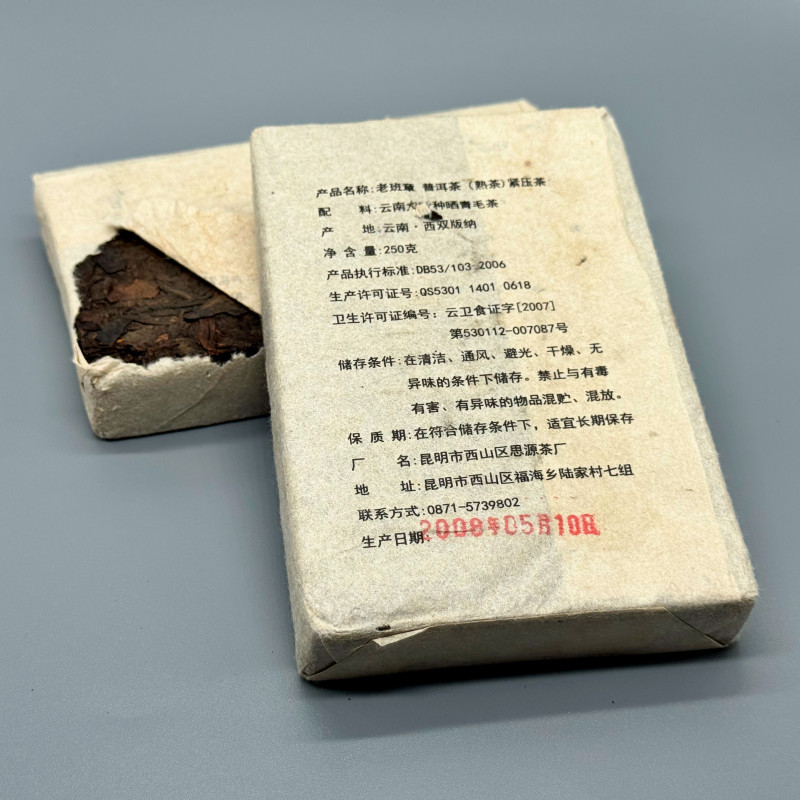 产品名称:老班章 普洱茶(熟茶)紧压茶
配 料:云南 种晒青毛茶
产 地:云南·西双版纳
净 含 量:250克
产品执行标准:DB53/103-2006
生产许可证号:QS5301 1401 0618
卫生许可证编号: 云卫食证字[2007]
第530112-007087号
储存条件:在清洁、通风、避光、干燥、无
异味的条件下储存。禁止与有毒
有害、有异味的物品混贮、混放。
保 质 期:在符合储存条件下,适宜长期保存
厂 名:昆明市西山区思源茶厂
地 址:昆明市西山区福海乡陆家村七组
联系方式:0871-5739802
生产日期:2008年05月10日